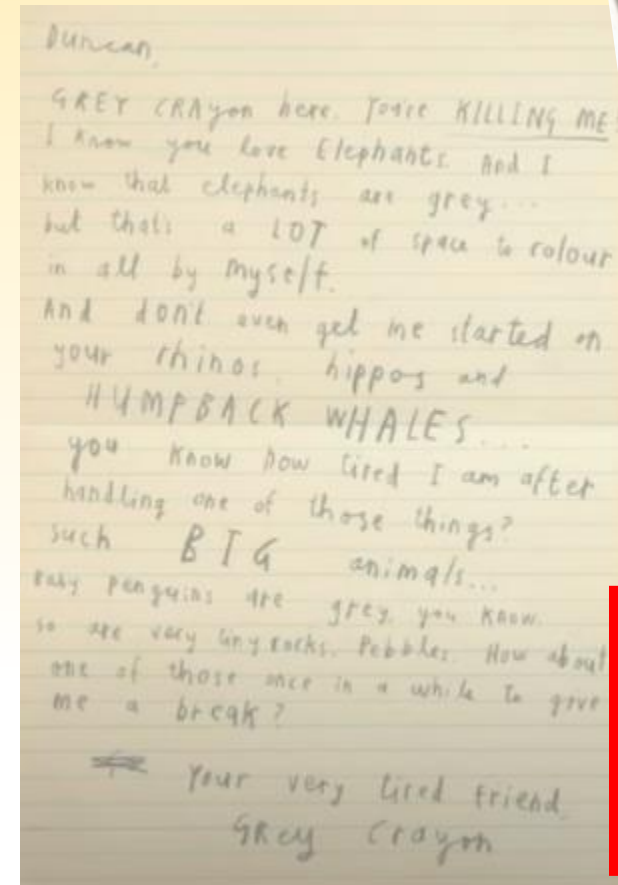 Duncan,
GREY CRAyon here. You're KILLING ME!
I know you love Elephants. And I
know that elephants are grey...
but thats a LOT of space to colour
in all by myself.
And don't even get me started on
your rhinos, hippos and
HUMPBACK WHALES...
you know how tired I am after
handling one of those things?
such BIG animals...
Baby penguins are grey, you know.
so are very tiny rocks. Pebbles. How about
one of those once in a while to give
me a break?
Your very tired friend,
GRey Crayon